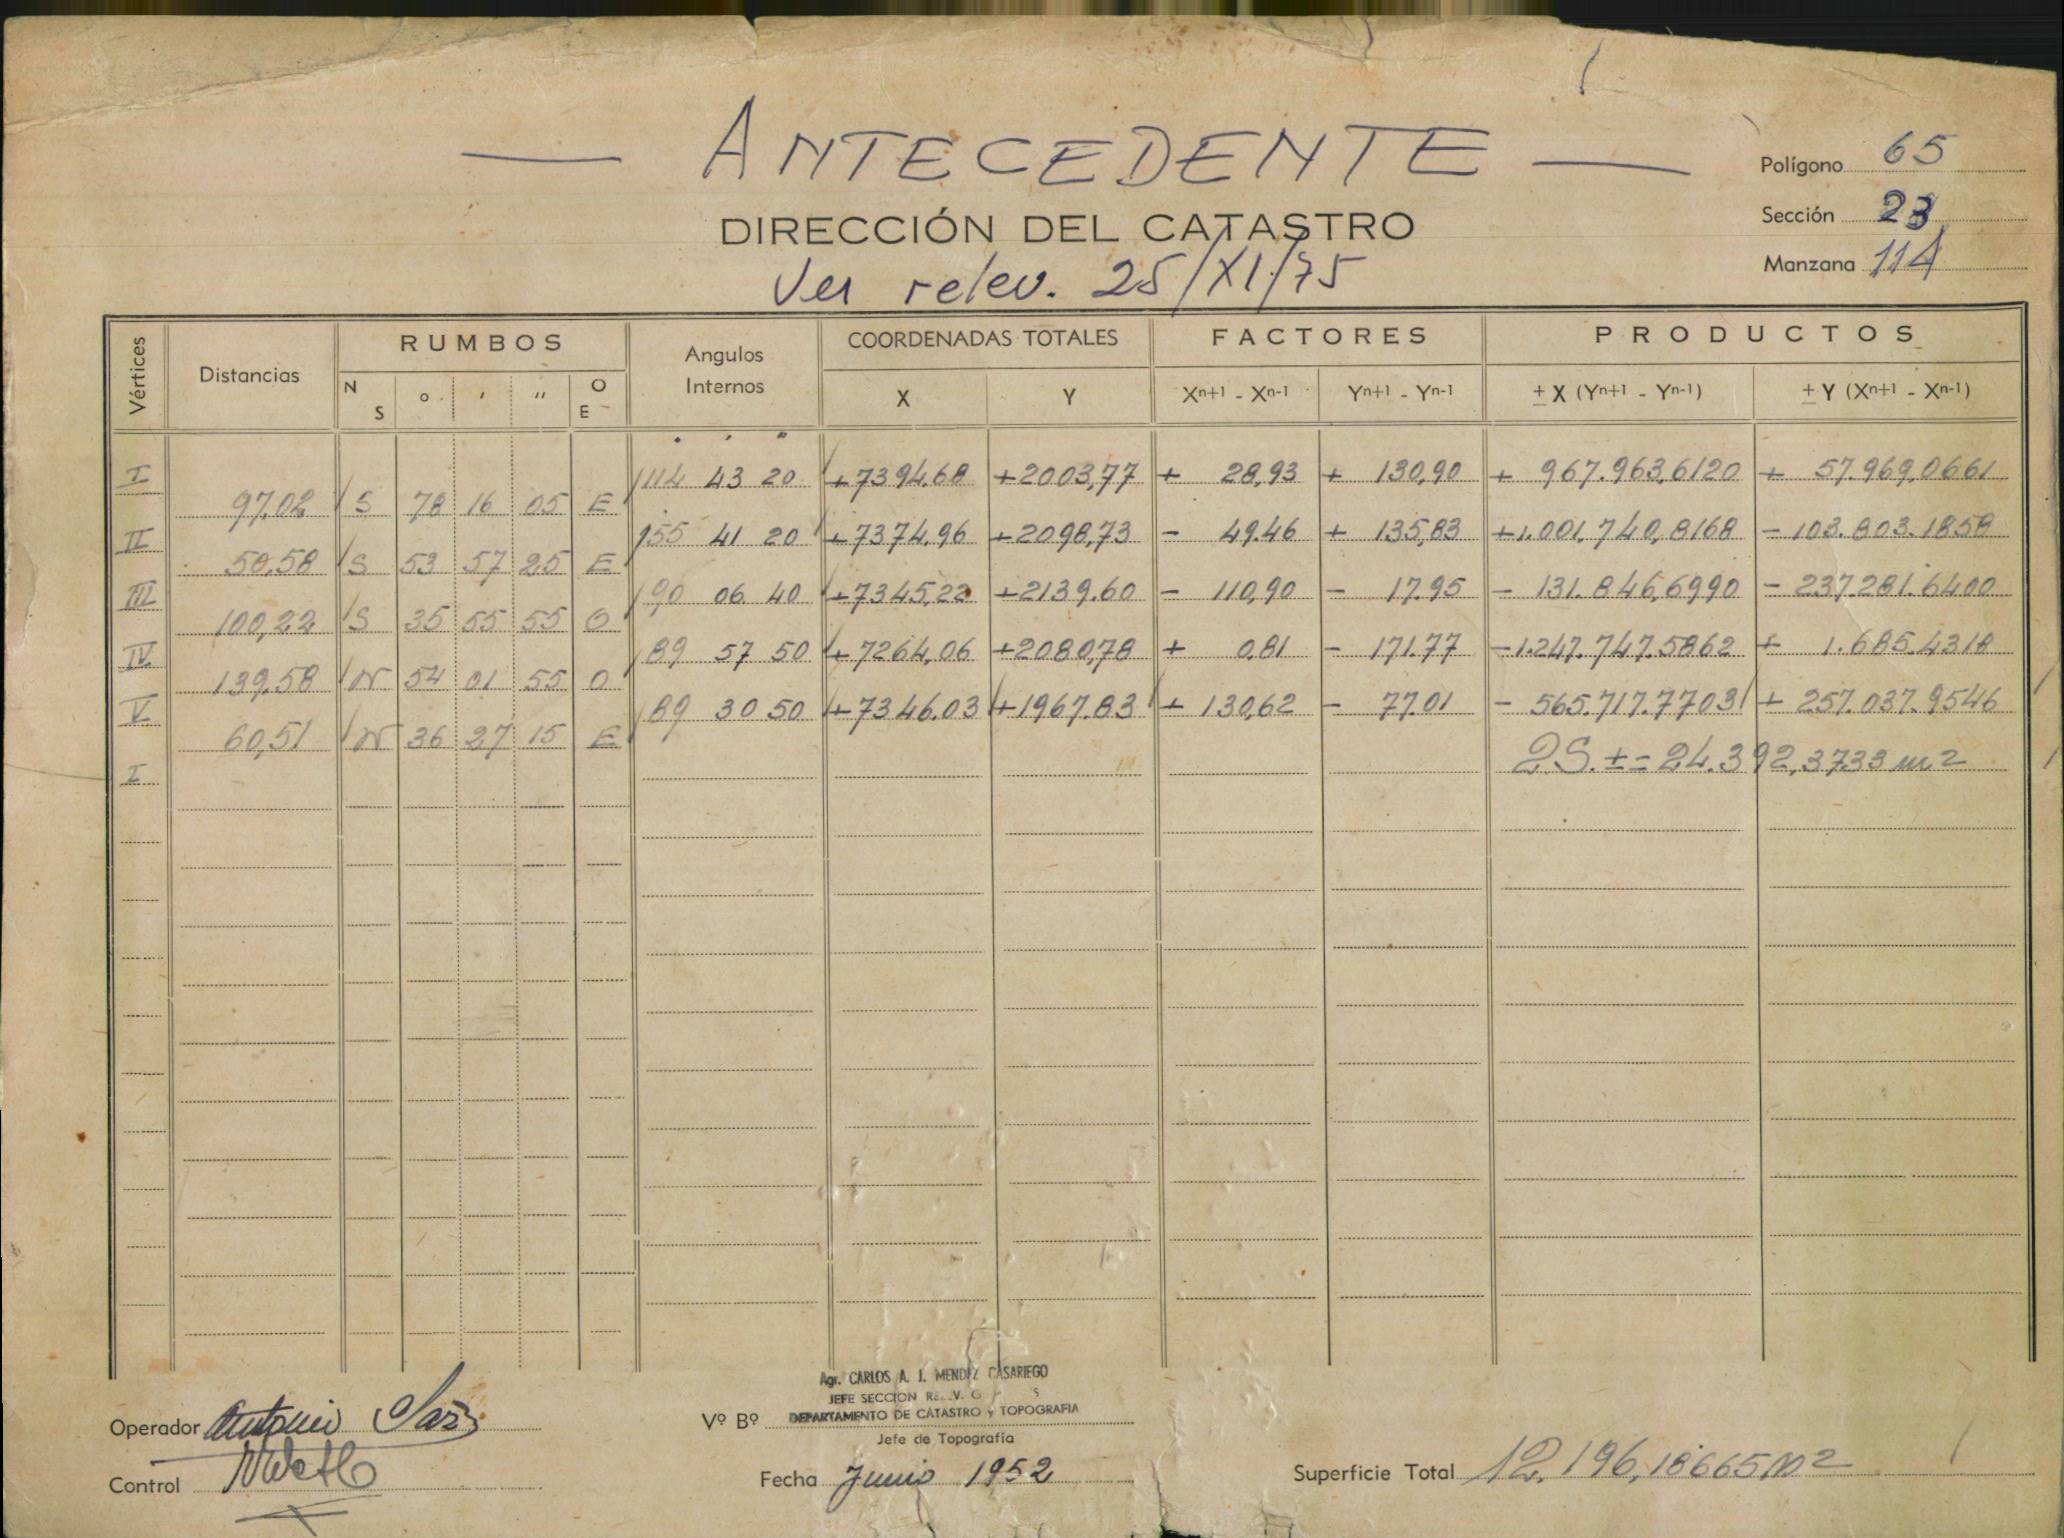 — ANTECEDENTE —
Polígono 65
DIRECCIÓN DEL CATASTRO
Sección 23
Ver relev. 25/XI/75
Manzana 114
Vértices Distancias RUMBOS Angulos Internos COORDENADAS TOTALES FACTORES PRODUCTOS
N S ° ' " O E X Y Xn+1 - Xn-1 Yn+1 - Yn-1 ± X (Yn+1 - Yn-1) ± Y (Xn+1 - Xn-1)
° ' "
I 114 43 20 +7394.68 +2003,77 + 28,93 + 130,90 + 967.963,6120 + 57.969,0661
97,02 S 78 16 05 E
II 155 41 20 +7374,96 +2098,73 - 49.46 + 135,83 +1.001,740,8168 - 103.803.1858
50,58 S 53 57 25 E
III 90 06 40 +7345,22 +2139.60 - 110,90 - 17.95 - 131.846,6990 - 237.281.6400
100,22 S 35 55 55 O
IV 89 57 50 +7264,06 +2080,78 + 0.81 - 171.77 -1.247.747.5862 + 1.685.4318
139.58 N 54 01 55 O
V 89 30 50 +7346.03 +1967.83 + 130,62 - 77.01 - 565.717.7703 + 257.037.9546
60,51 N 36 27 15 E
I 2S.±= 24.392,3733 m2
Agr. CARLOS A. J. MENDEZ CASARIEGO
JEFE SECCION
Operador Antonio
Vº Bº DEPARTAMENTO DE CATASTRO y TOPOGRAFIA
Jefe de Topografía
Control
Fecha Junio 1952
Superficie Total 12.196,18665 m2